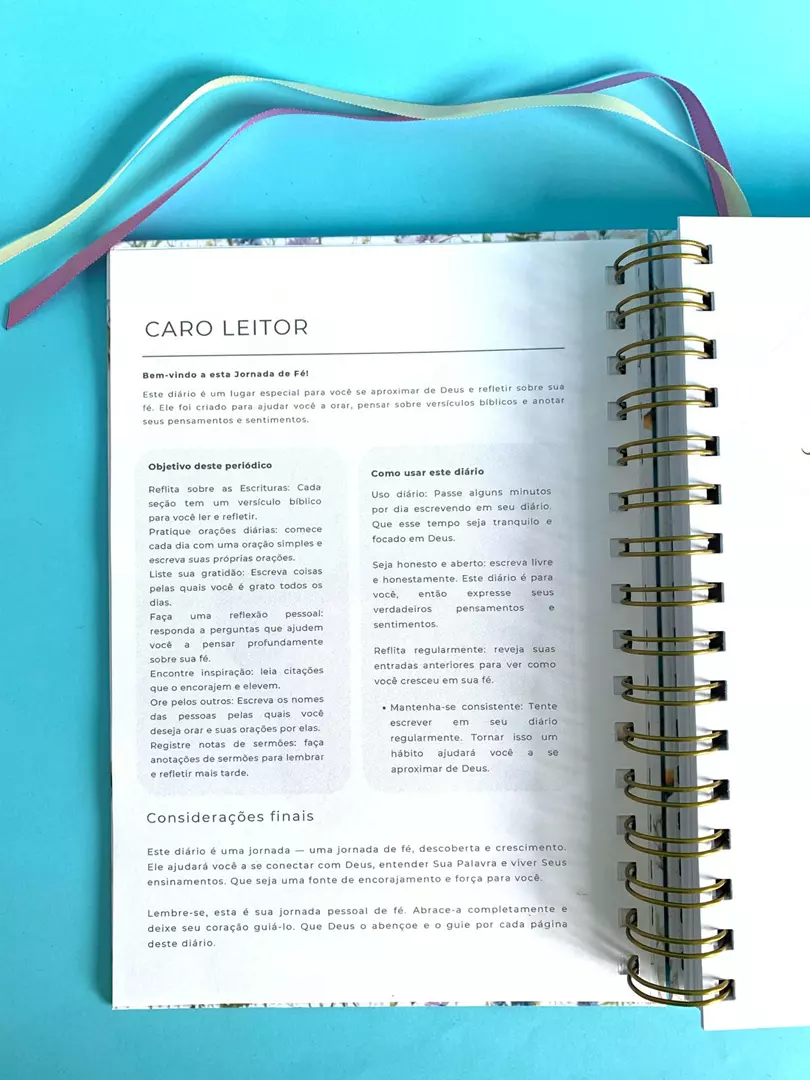 CARO LEITOR
Bem-vindo a esta Jornada de Fé!
Este diário é um lugar especial para você se aproximar de Deus e refletir sobre sua
fé. Ele foi criado para ajudar você a orar, pensar sobre versículos bíblicos e anotar
seus pensamentos e sentimentos.
Objetivo deste periódico
Reflita sobre as Escrituras: Cada
seção tem um versículo bíblico
para você ler e refletir.
Pratique orações diárias: comece
cada dia com uma oração simples e
escreva suas próprias orações.
Liste sua gratidão: Escreva coisas
pelas quais você é grato todos os
dias.
Faça uma reflexão pessoal:
responda a perguntas que ajudem
você a pensar profundamente
sobre sua fé.
Encontre inspiração: leia citações
que o encorajem e elevem.
Ore pelos outros: Escreva os nomes
das pessoas pelas quais você
deseja orar e suas orações por elas.
Registre notas de sermões: faça
anotações de sermões para lembrar
e refletir mais tarde.
Como usar este diário
Uso diário: Passe alguns minutos
por dia escrevendo em seu diário.
Que esse tempo seja tranquilo e
focado em Deus.
Seja honesto e aberto: escreva livre
e honestamente. Este diário é para
você, então expresse seus
verdadeiros pensamentos e
sentimentos.
Reflita regularmente: reveja suas
entradas anteriores para ver como
você cresceu em sua fé.
• Mantenha-se consistente: Tente
escrever em seu diário
regularmente. Tornar isso um
hábito ajudará você a se
aproximar de Deus.
Considerações finais
Este diário é uma jornada — uma jornada de fé, descoberta e crescimento.
Ele ajudará você a se conectar com Deus, entender Sua Palavra e viver Seus
ensinamentos. Que seja uma fonte de encorajamento e força para você.
Lembre-se, esta é sua jornada pessoal de fé. Abrace-a completamente e
deixe seu coração guiá-lo. Que Deus o abençoe e o guie por cada página
deste diário.